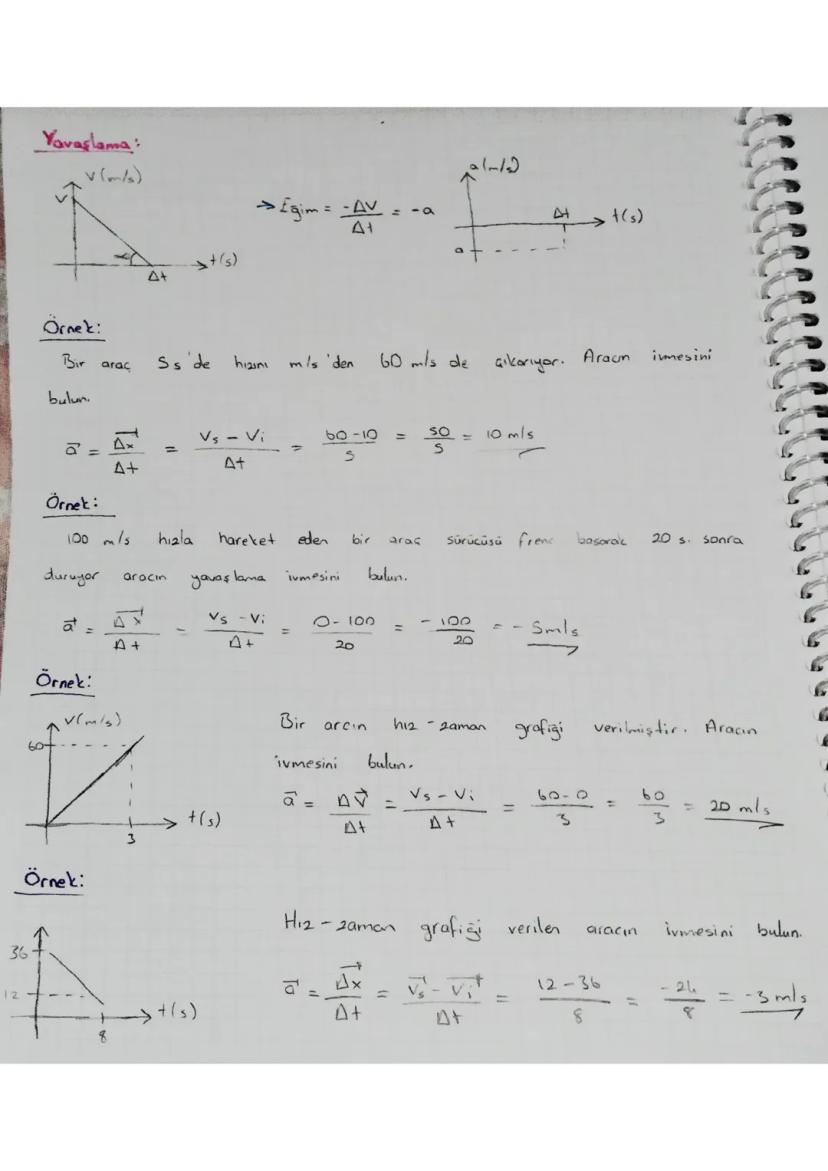 Yavaşlama:
V(m/s)
V
α
Δt
t(s)
→ Eğim = -ΔV/Δt = -a
a(m/s)
Δt
t(s)
a
Örnek:
Bir araç 5s'de hızını m/s'den 60 m/s de çıkarıyor. Aracın ivmesini
bulun.
a⃗ = Δx⃗/Δt = Vs - Vi/Δt = 60-10/5 = 50/5 = 10 m/s
Örnek:
100 m/s hızla hareket eden bir araç sürücüsü frene basarak 20 s. sonra
duruyor aracın yavaşlama ivmesini bulun.
a⃗ = Δx⃗/Δt = Vs - Vi/Δt = 0-100/20 = -100/20 = -5m/s
Örnek:
V(m/s)
60
t(s)
3
Bir arcın hız-zaman grafiği verilmiştir. Aracın
ivmesini bulun.
a⃗ = ΔV⃗/Δt = Vs - Vi/Δt = 60-0/3 = 60/3 = 20 m/s
Örnek:
36
12
t(s)
8
Hız-zaman grafiği verilen aracın ivmesini bulun.
a⃗ = Δx⃗/Δt = V⃗s - V⃗i/Δt = 12-36/8 = -24/8 = -3 m/s